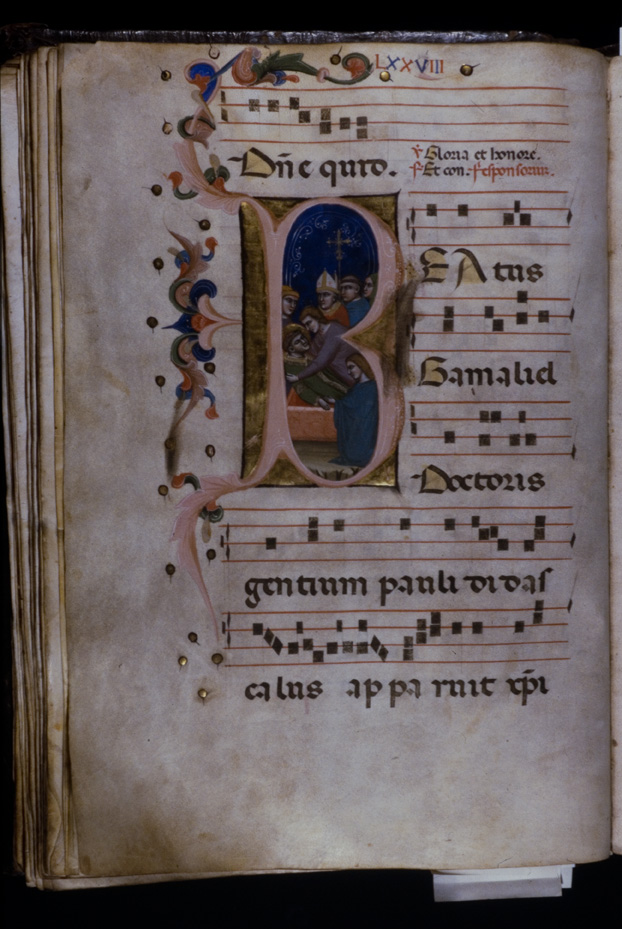 LXXVIII
Dñe quid.
℣ Gloria et honore.
℟ Et con. Responsorium.
BEAtus
Gamaliel
Doctoris
gentium pauli didas
calus ap pa ruit xp̄i